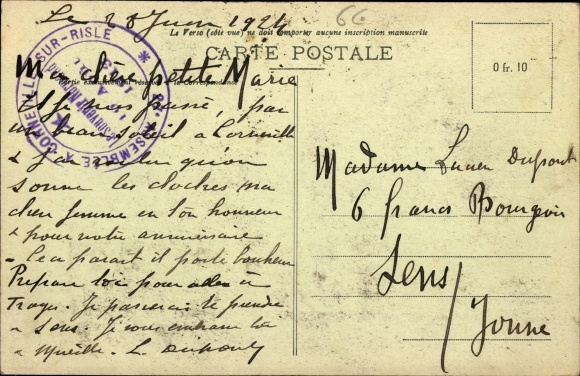 Le 28 Juin 1924
66
Le Verso (côté vue) ne doit comporter aucune inscription manuscrite
CARTE POSTALE
Partie exclusivement réservée à la Correspondance
0 fr. 10
CORNEVILLE-SUR-RISLE
Ma chère petite Marie
Et je suis passé, par
un beau soleil à Corneville
& j'ai voulu qu'on
sonne les cloches ma
chère femme en ton honneur
& pour notre anniversaire
Cela parait il porte bonheur
Prepare toi pour aller à
Troyes. Je passerai te prendre
à Sens. Je vous embrasse toi
& Mireille. L. Dupont
Madame Lucien Dupont
6 francs Bourgeois
Sens
Yonne